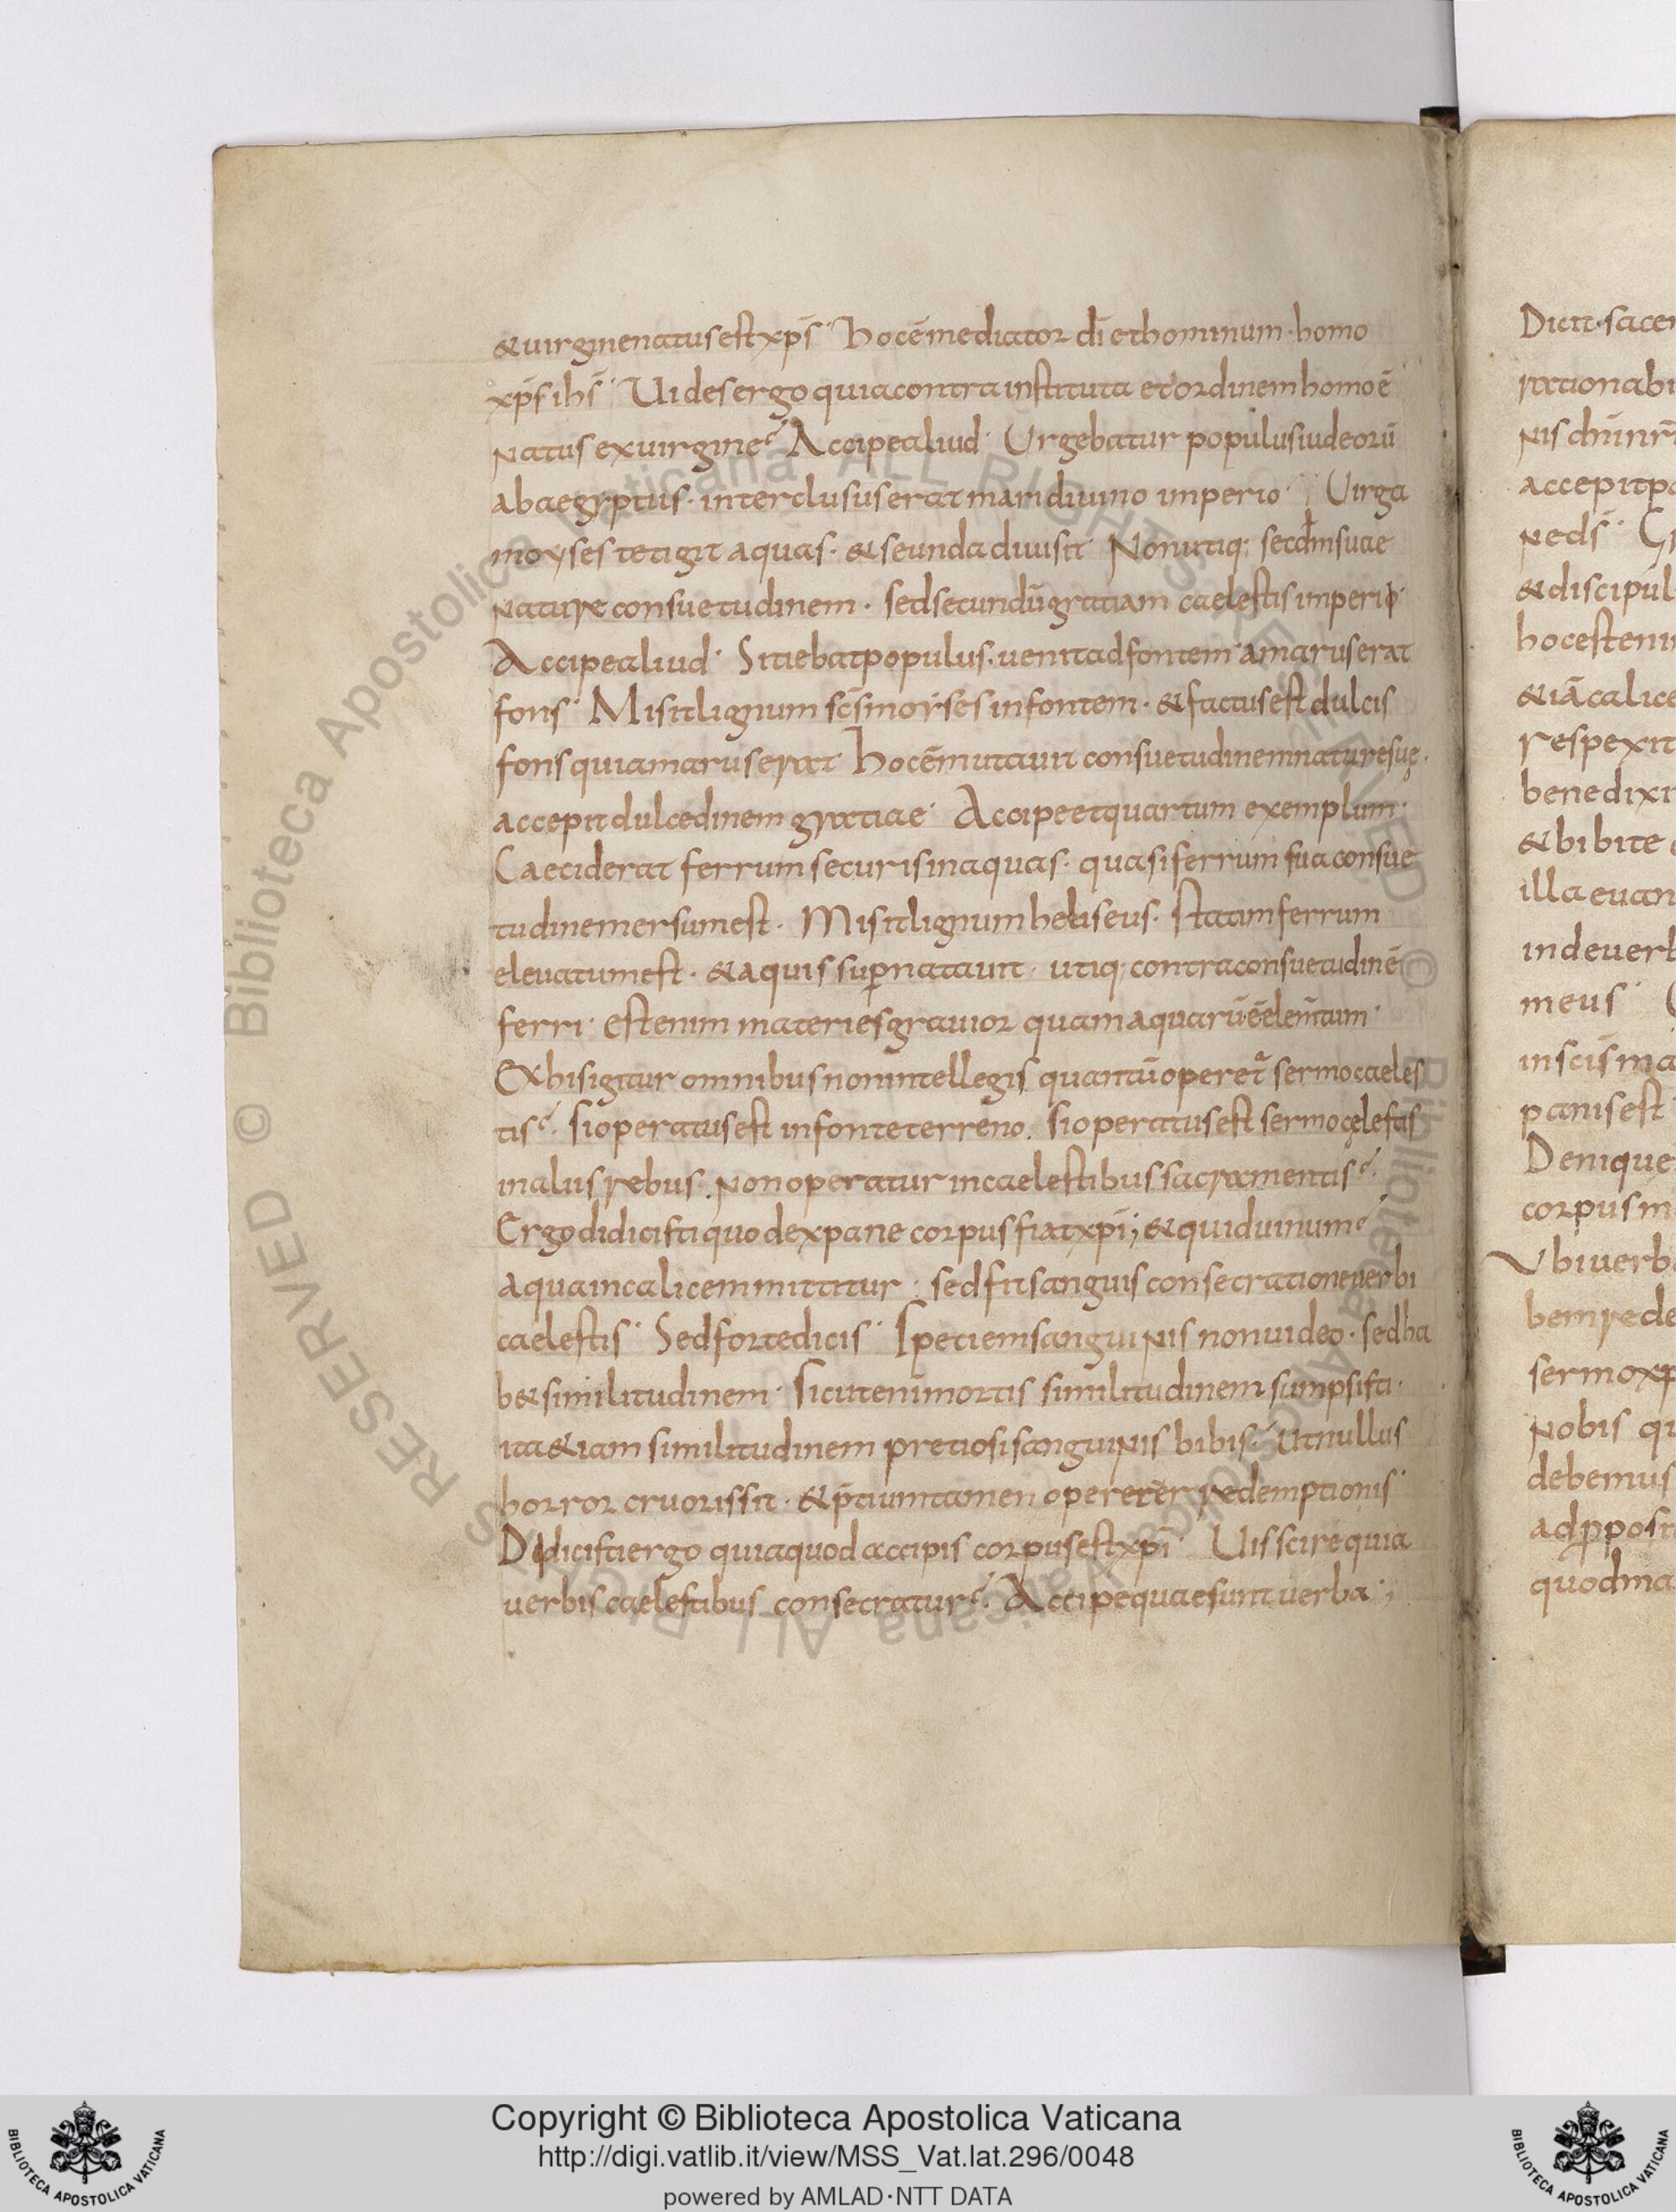 &uirginenatusest xp̄s· hocēmediator dī ethominum· homo
xp̄s ihs̄· Uidesergo quiacontrainstituta etordinemhomoē
natus exuirgine? Accipealiud· Urgebatur populusiudeorū
abaegyptus· interclususerat mari diuino imperio· Uirga
moyses tetigit aquas· &seundadiuisit· Nonutiq; secdmsuae
nature consuetudinem· sedsecundūgratiam caelestis imperio·
Accipealiud· Sitiebatpopulus· uenitadfontem· amaruserat
fons· Misitlignum sc̄smoyses infontem· &factusest dulcis
fons quiamaruserat· hocēmutauit consuetudinemnaturesuę·
accepitdulcedinem gratiae· Accipeetquartum exemplum·
Caeciderat ferrumsecurisinaquas· quasiferrum suaconsue
tudinemersumest· Misitlignumheliseus· statimferrum
eleuatumest· &aquissup̱natauit· utiq; contraconsuetudinē
ferri· estenim materiesgrauior quamaquarūēelem̄tum·
Exhisigitur omnibusnonintellegis quantūoperet̄ sermocaeles
tis? sioperatusest infonteterreno· sioperatusest sermocęlestis
inaliisrebus· nonoperatur incaelestibussacramentis?
Ergodidicisti quodexpane corpusfiatxpī; &quiduinum?
aquaincalicemmittitur· sedfitsanguis consecrationeuerbi
caelestis· Sedfortedicis· Speciemsanguinis nonuideo· sedha
b&similitudinem· Sicutenimmortis similitudinem sumpsisti·
ita&iam similitudinem pretiosisanguinis bibis· Utnullus
horror cruorissit· &p̄tiumtamen operetēr redemptionis·
Didicistiergo quiaquod accipis corpusestxpī· Uisscirequia
uerbiscaelestibus consecratur? Accipequaesunt uerba;
Dicit· sacer
rationabi
nis dn̄inr̄i
accepitpa
neds̄·
&discipul
hocestenim
&iācalice
respexit
benedixi
&bibite
illa euan
indeuerb
meus·
inscīsma
panisest
Denique
corpusm
Ubiuerba
bemrede
sermoxp
nobis qu
debemus
adp̱posit
quodma
Copyright © Biblioteca Apostolica Vaticana
http://digi.vatlib.it/view/MSS_Vat.lat.296/0048
powered by AMLAD·NTT DATA
BIBLIOTECA APOSTOLICA VATICANA
BIBLIOTECA APOSTOLICA VATICANA
© Biblioteca Apostolica Vaticana ALL RIGHTS RESERVED © Biblioteca Apostolica Vaticana ALL RIGHTS RESERVED